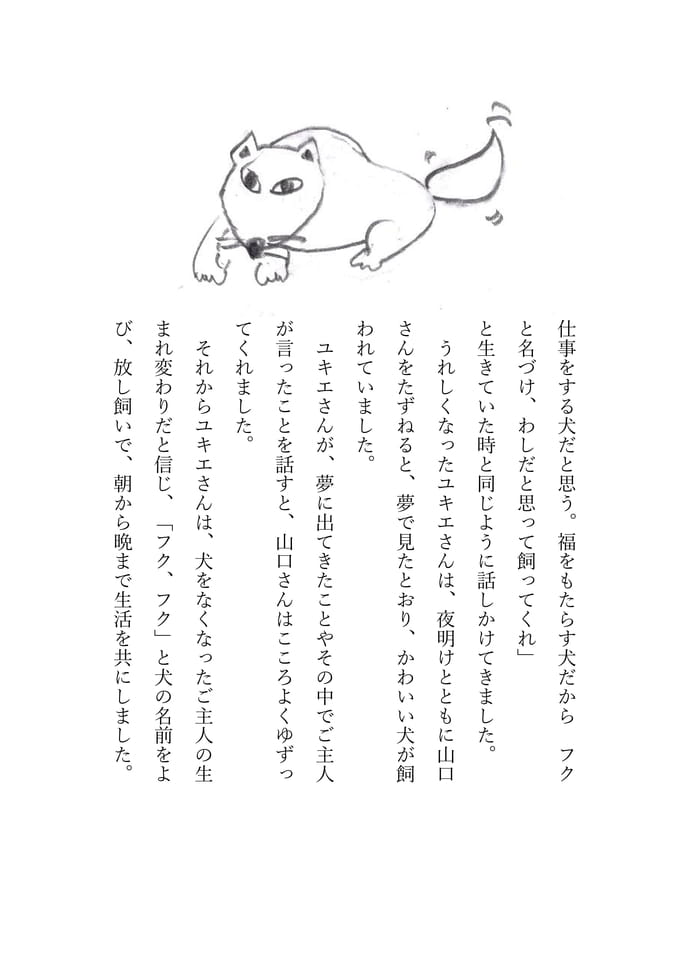 仕事をする犬だと思う。福をもたらす犬だから　フク
と名づけ、わしだと思って飼ってくれ」
と生きていた時と同じように話しかけてきました。
　うれしくなったユキエさんは、夜明けとともに山口
さんをたずねると、夢で見たとおり、かわいい犬が飼
われていました。
　ユキエさんが、夢に出てきたことやその中でご主人
が言ったことを話すと、山口さんはこころよくゆずっ
てくれました。
　それからユキエさんは、犬をなくなったご主人の生
まれ変わりだと信じ、「フク、フク」と犬の名前をよ
び、放し飼いで、朝から晩まで生活を共にしました。